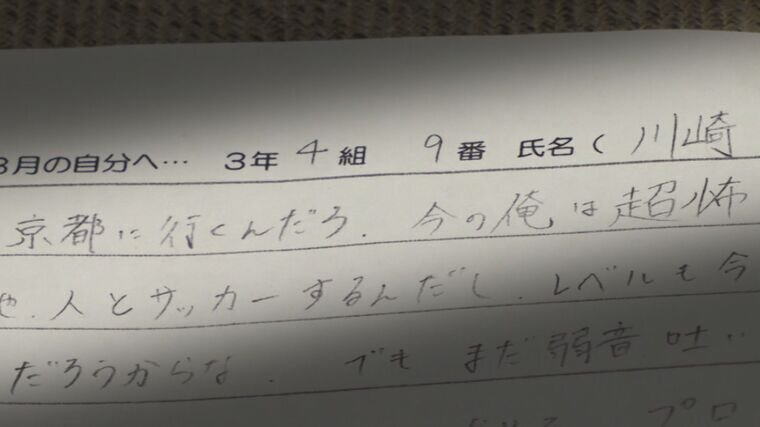 3月の自分へ… 3年 4 組 9 番 氏名( 川崎
京都に行くんだろ. 今の俺は超怖
地. 人とサッカーするんだし. レベルも今
だろうからな. でも まだ弱音吐
プロ